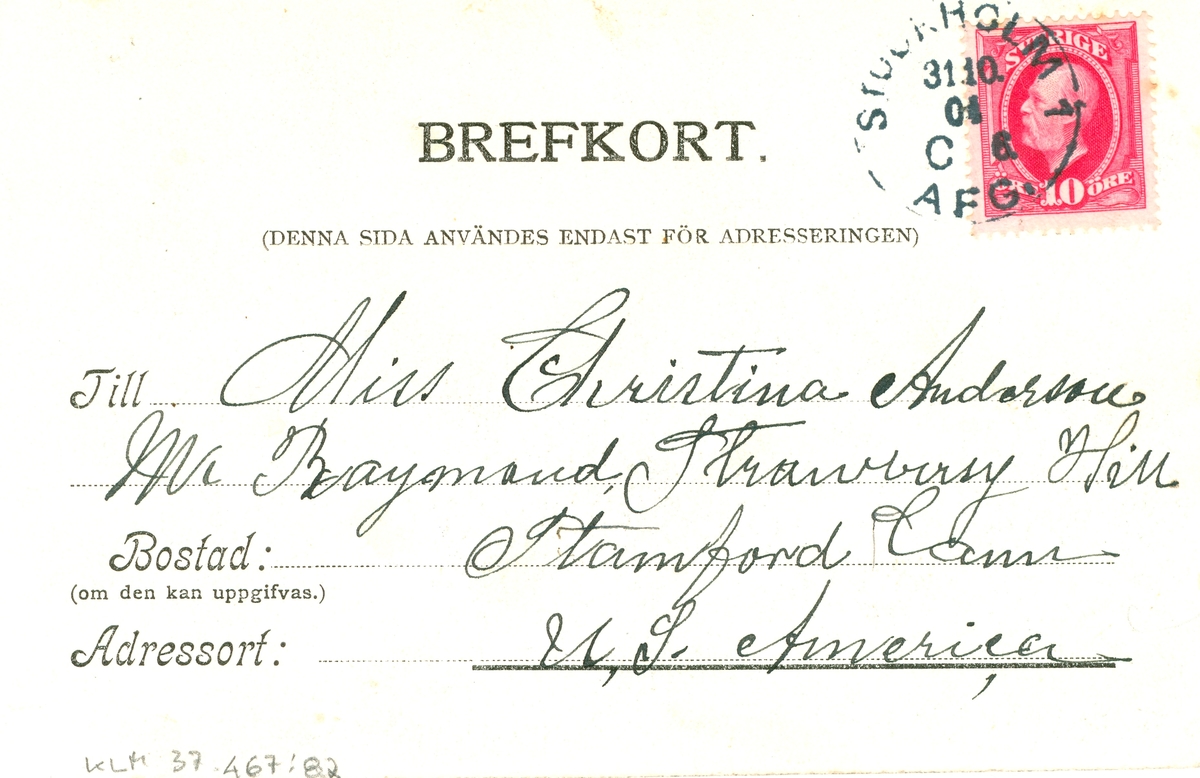 STOCKHOLM 1
31.10.
01
C 6
AFG.
SVERIGE
ÖRE 10 ÖRE
BREFKORT.
(DENNA SIDA ANVÄNDES ENDAST FÖR ADRESSERINGEN)
Till Miss Christina Anderson
Mr Raymond, Strawberry Hill
Bostad: Stamford Conn
(om den kan uppgifvas.)
Adressort: U, S. America,
KLM 37.467:82